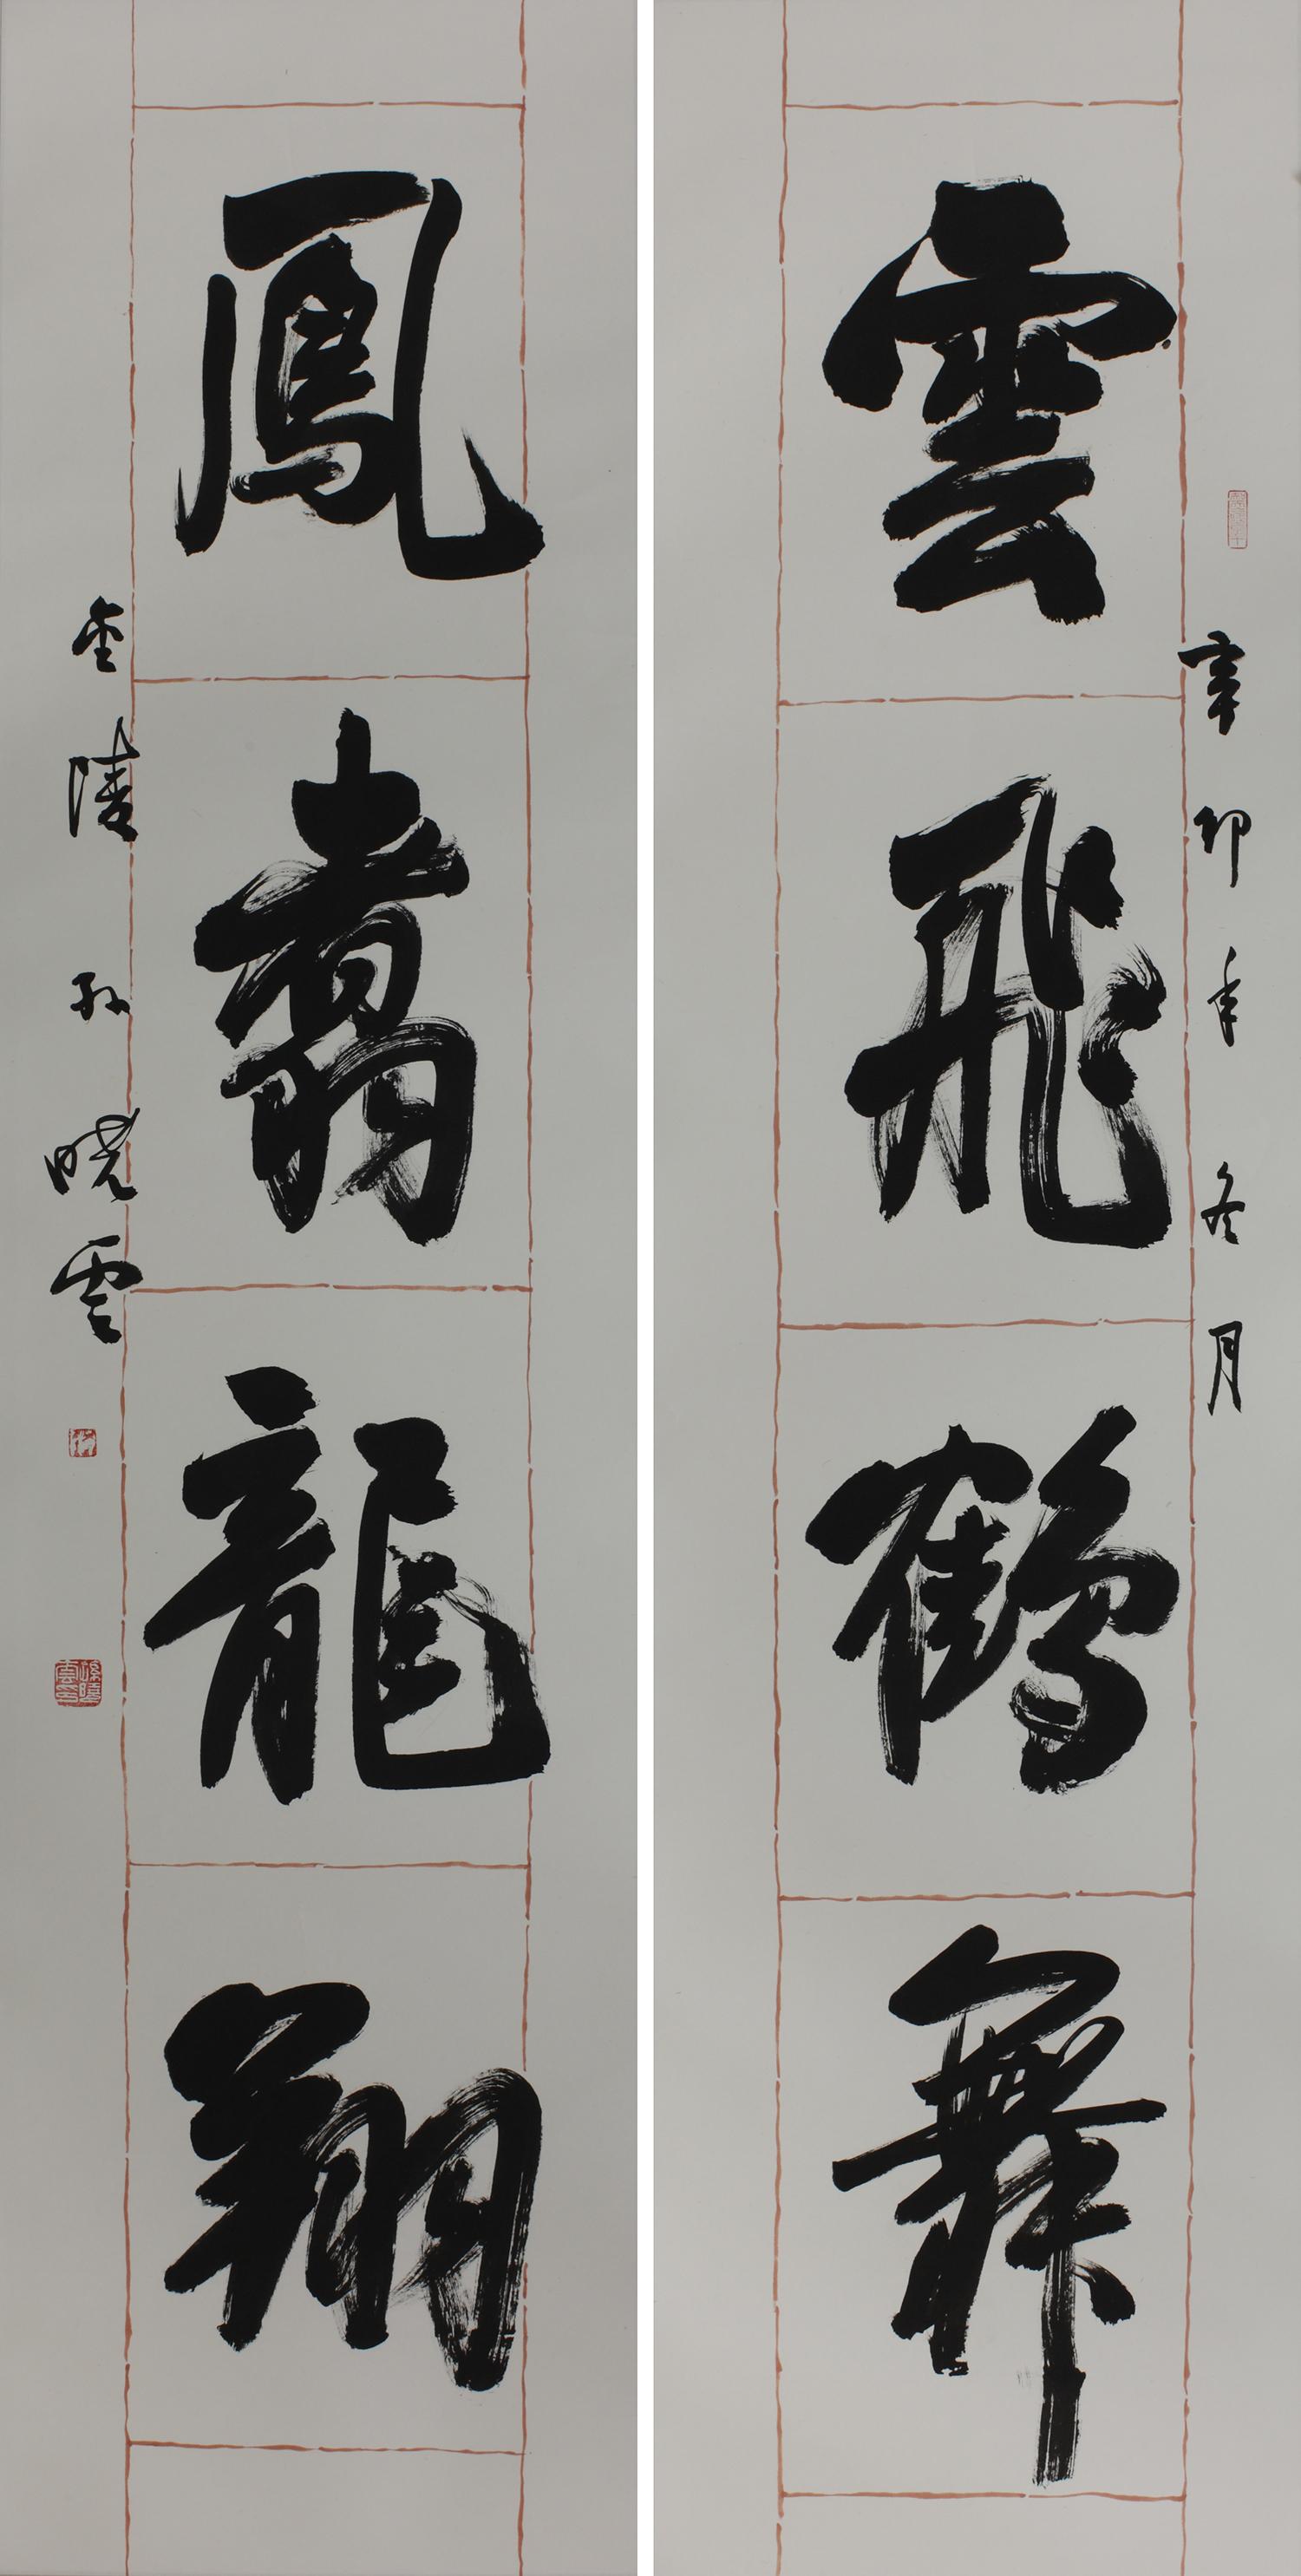 雲飛鶴舞
辛卯年冬月
鳳翥龍翔
金陵孫曉雲
孫曉雲印